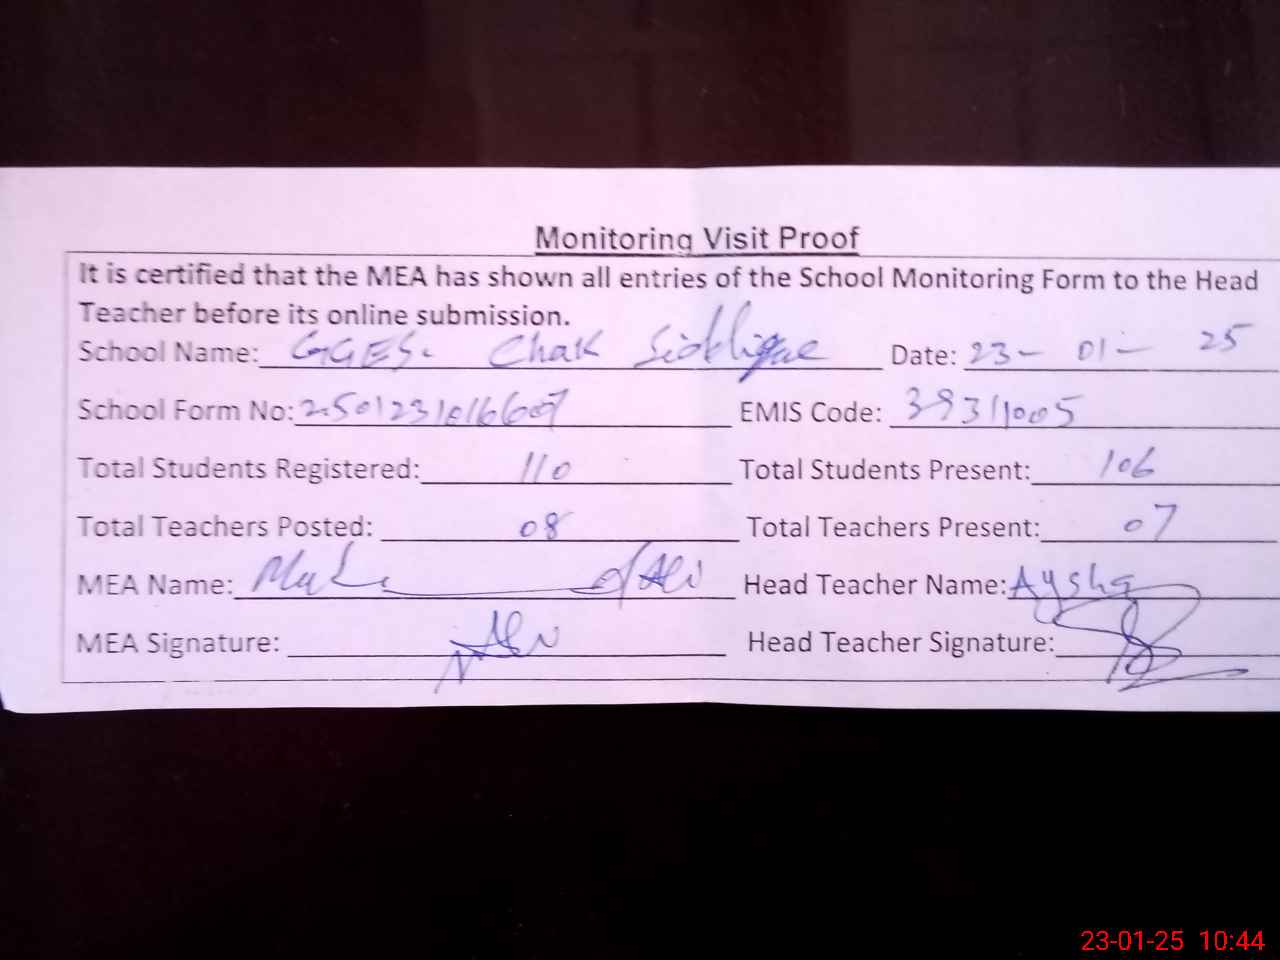 Monitoring Visit Proof
It is certified that the MEA has shown all entries of the School Monitoring Form to the Head
Teacher before its online submission.
School Name: GGES. Chak Siddique Date: 23- 01- 25
School Form No: EMIS Code: 39311005
Total Students Registered: 110 Total Students Present: 106
Total Teachers Posted: 08 Total Teachers Present: 07
MEA Name: Ali Head Teacher Name: Aysha
MEA Signature: Head Teacher Signature:
23-01-25 10:44